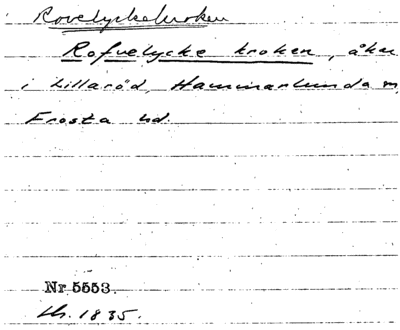 Rovelyckekroken
Rofvelycke kroken, åker
i Lillaröd, Hammarlunda sn,
Frosta hd.
Nr 5553.
Lh. 1835.